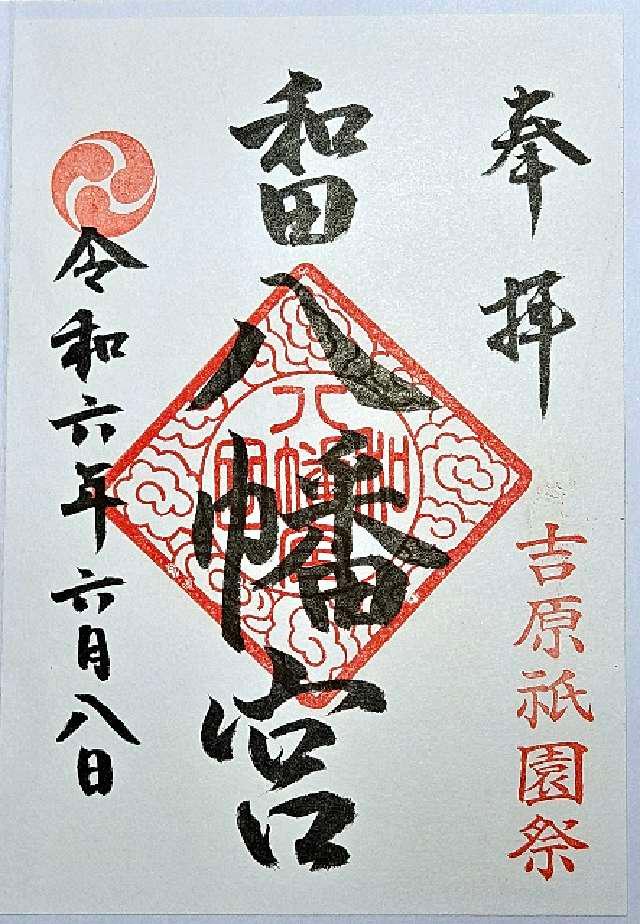 奉拝
吉原祇園祭
和田八幡宮
令和六年六月八日